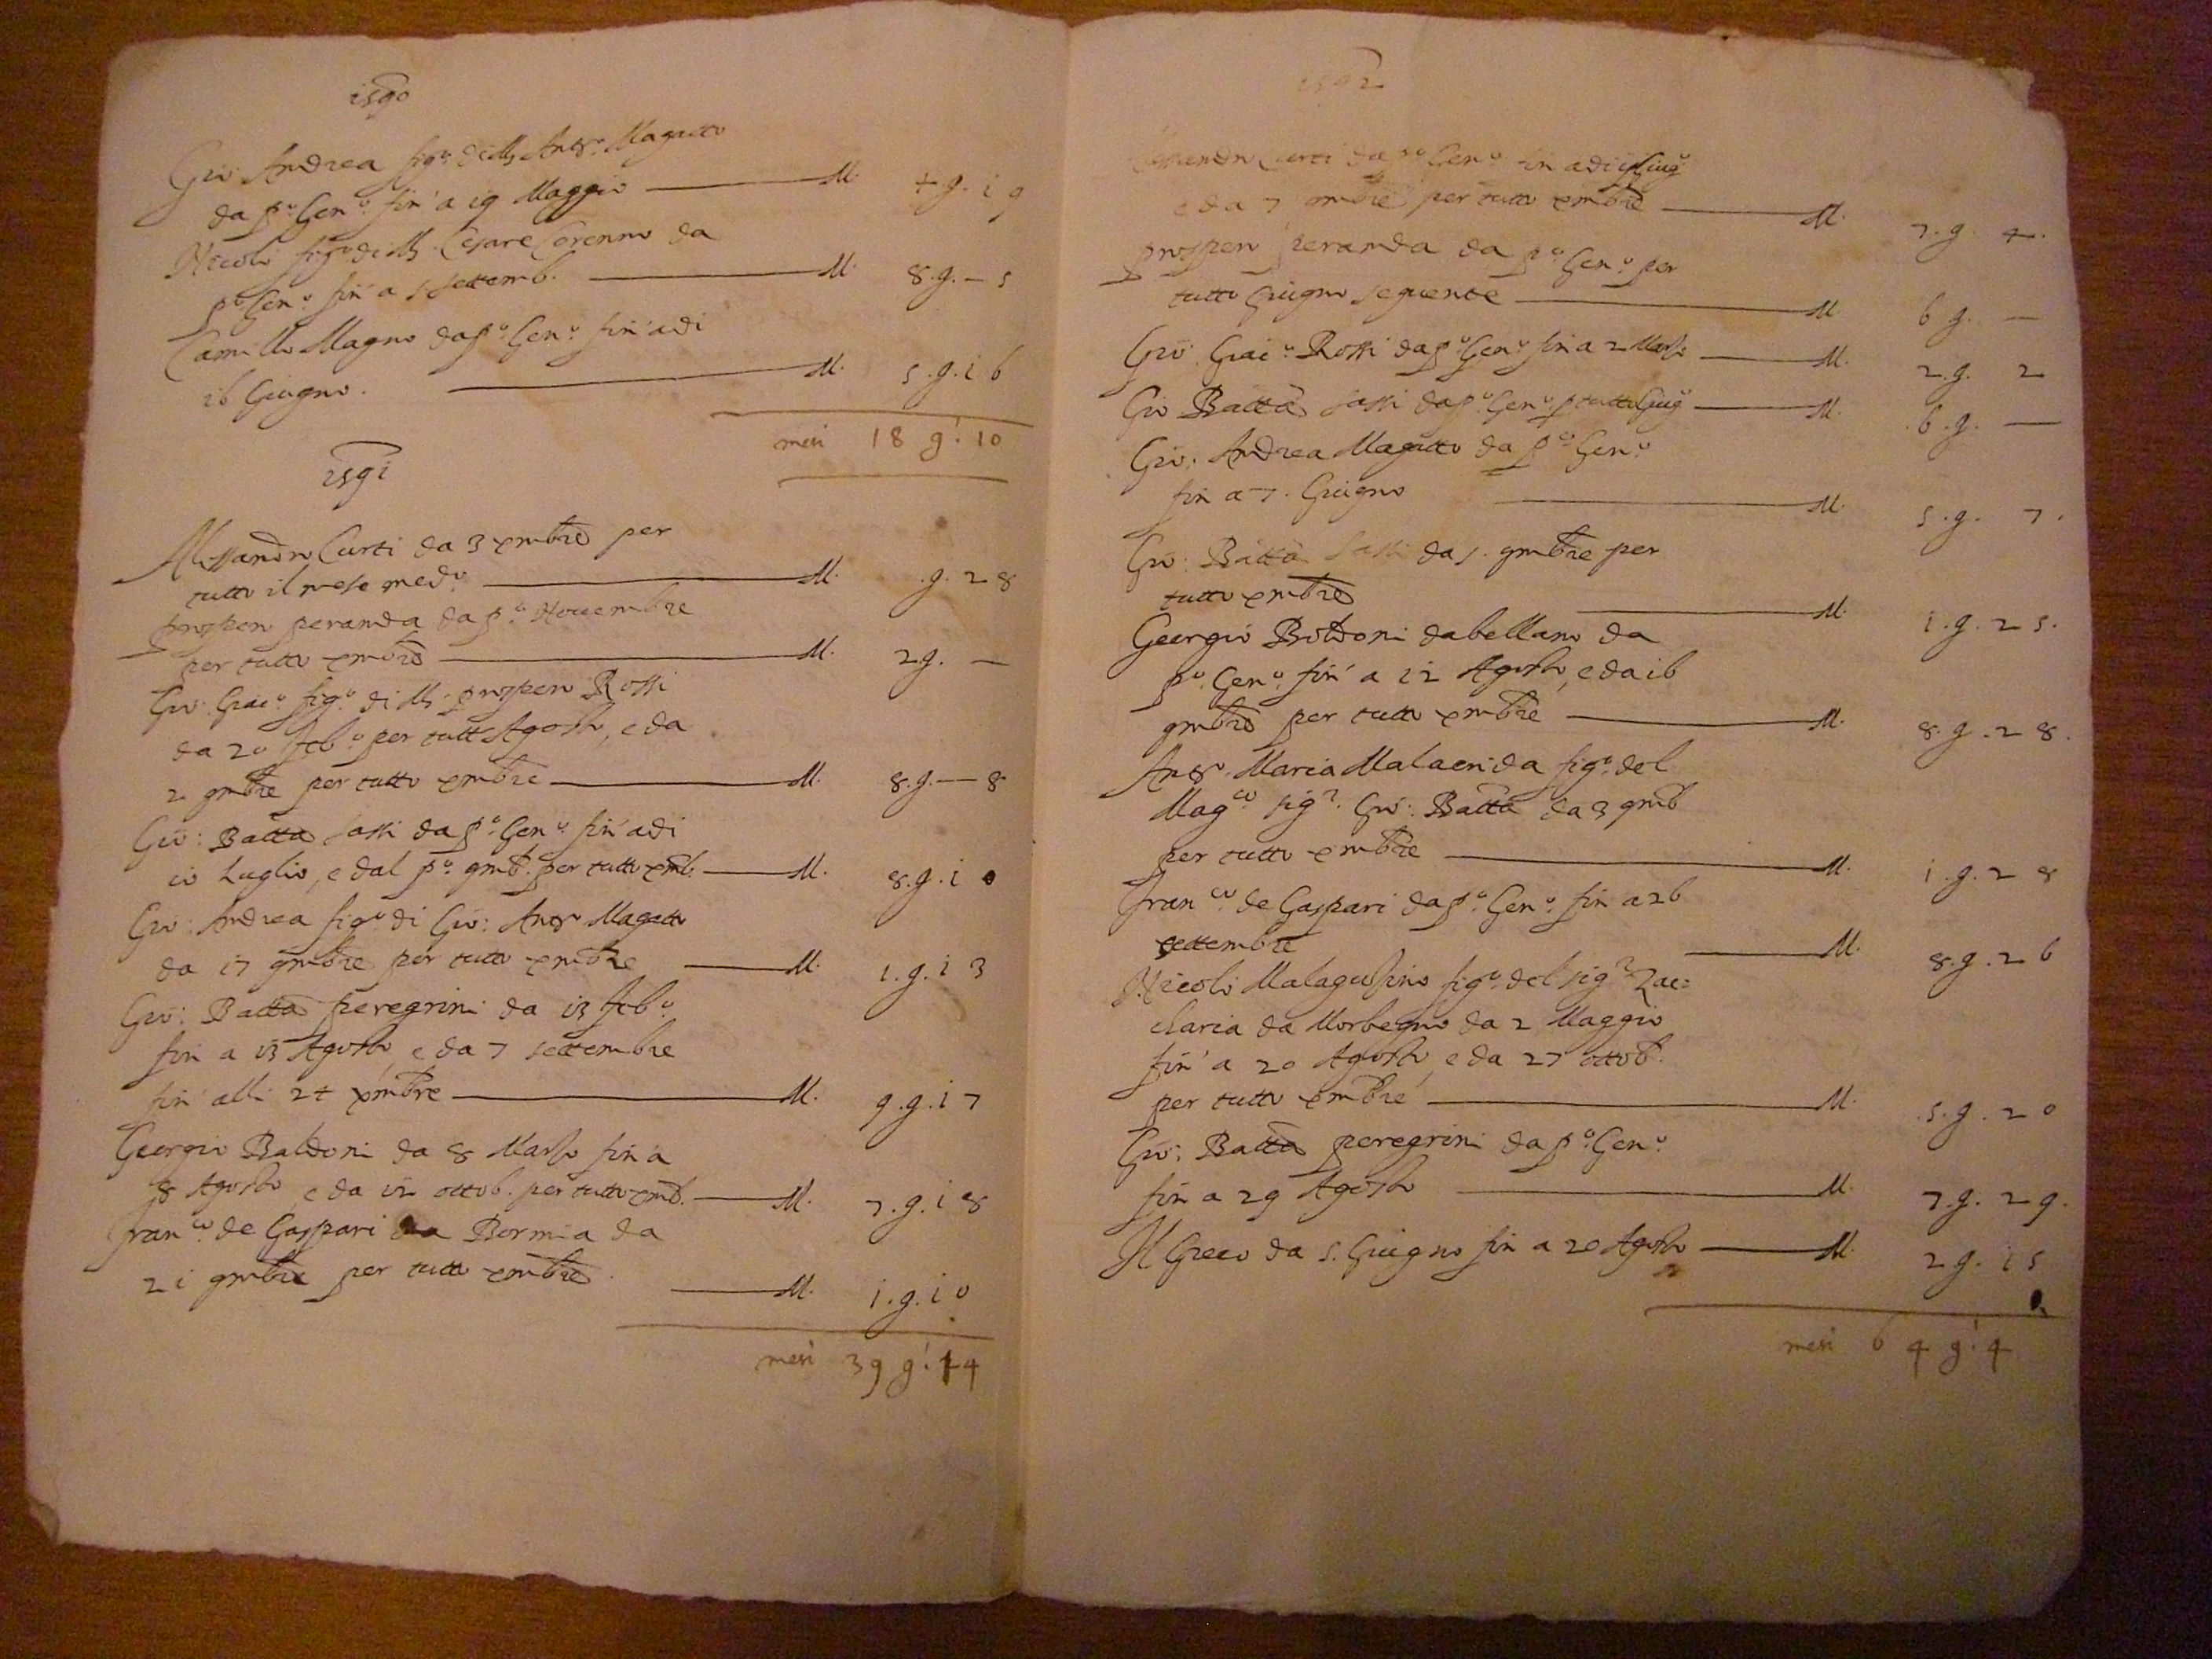 1590
Gio: Andrea figº di Ms Antº Magatto
da pº Genº fin' a 19 Maggio — M. 4 g. 19
Nicolò figº di Ms. Cesare Corenno da
pº Genº fin' a 5 settemb. — M. 8. g. — 5
Camillo Magno da pº Genº fin' adi
16 Giugno. — M. 5. g. 16
mesi 18 g.i 10
1591
Alessandro Curti da 3 xmbre per
tutto il mese medº — M. .g. 28
prospero peranda da pº Nouembre
per tutto xmbre — M. 2 g. —
Gio: Giacº figº di Ms. prospero Rossi
da 20 febº per tutt' Agosto, e da
2 gmbre per tutto xmbre — M. 8. g. — 8
Gio: Batta Sassi da pº Genº fin' adi
10 Luglio, e dal pº gmb. per tutto xmb. — M. 8. g. 10
Gio: Andrea figº di Gio: Antº Magatto
da 17 gmbre per tutto xmbre — M. 1. g. 13
Gio: Batta peregrini da 13 febº
fin a 13 Agosto, e da 7 settembre
fin' alli 24 xmbre — M. 9. g. 17
Georgio Baldoni da 8 Marso fin a
8 Agosto, e da 12 ottob. per tutto xmb. — M. 7. g. 18
Francº de Gaspari da Bormia da
21 gmbre per tutto xmbre. — M. 1. g. 10
mesi 39 g.i 14
1592
Alessandro Curti da pº Genº fin adi Giugº
e da 7 gmbre per tutto xmbre — M. 7. g. 4.
prospero peranda da pº Genº per
tutto Giugno seguente — M. 6 g. —
Gio: Giacº Rossi da pº Genº fin a 2 Marso — M. 2. g. 2
Gio Batta Sassi da pº Genº p tutto Giugº — M. .6. g. —
Gio: Andrea Magatto da pº Genº
fin a 7. Giugno — M. 5. g. 7.
Gio: Batta Sassi da 5. gmbre per
tutto xmbre — M. 1. g. 25.
Georgio Boldoni da bellano da
pº Genº fin' a 12 Agosto, e da 16
gmbre per tutto xmbre — M. 8. g. 28.
Antº Maria Malacrida figº del
Magco sigr. Gio: Batta da 3 gmb
per tutto xmbre — M. 1. g. 28
Franco de Gaspari da pº Genº fin a 26
settembre — M. 8. g. 26
Nicolò Malaguino figº del sigr Zac=
charia da Morbegno da 2 Maggio
fin' a 20 Agosto, e da 27 ottob.
per tutto xmbre — M. .5. g. 20
Gio: Batta peregrini da pº Genº
fin a 29 Agosto — M. 7. g. 29.
Il Greco da 5. Giugno fin a 20 Agosto — M. 2 g. 15
mesi 64 g.i 4